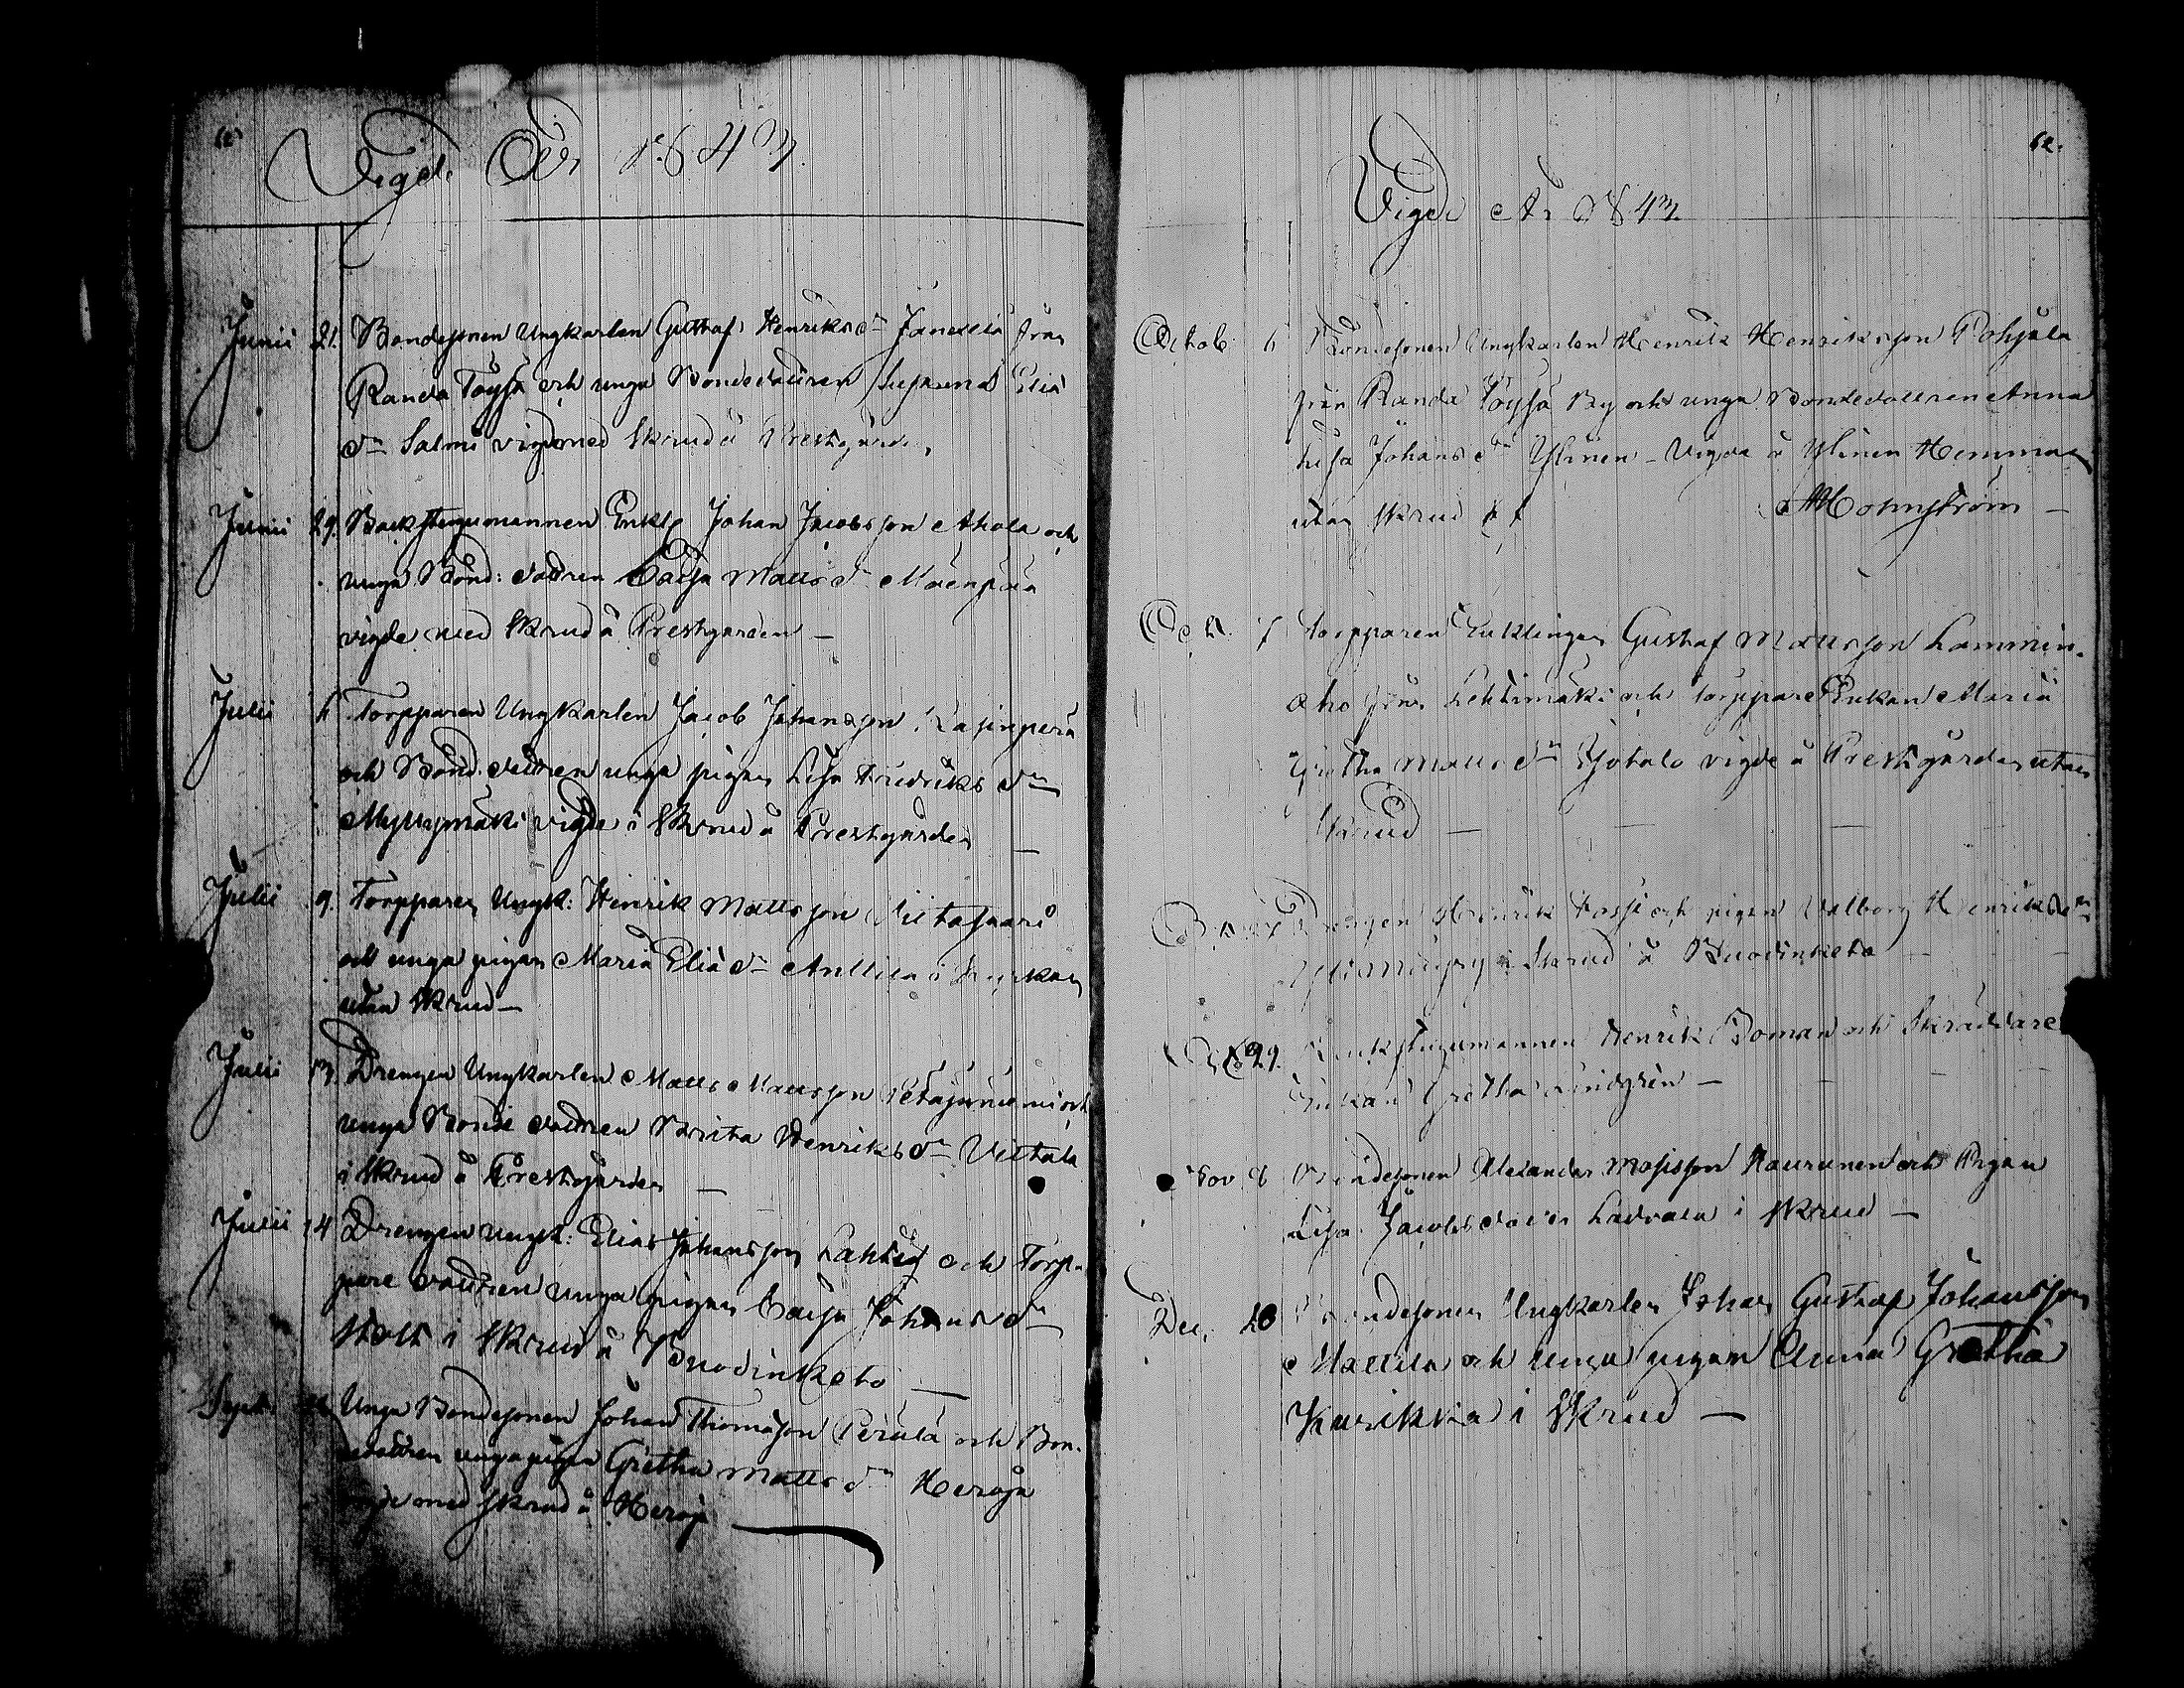 62
Vigde År 1843.
Junii 21. Bondesonen Ungkarlen Gustaf Henrikss:n Janexela från
Randa Töysä och unga Bondedottren Susanna Eliæ
d:r Salmi vigde med Skrud å Prestgården,
Junii 29. Backstugumannen Enkl: Johan Jacobsson Ahola och
unga Bond: dottren Caisa Matts d:r Mäenpää
vigde med Skrud å Prestgården —
Julii 6 Torpparen Ungkarlen Jacob Johansson
och Bond. dottren unga pigan Lisa Fredriks d:r
Myllymäki vigde i Skrud å Prestgården —
Julii 9. Torpparen Ungk: Henrik Mattsson Pietasaari
och unga pigan Maria Eliæ d:r Anttila i Kyrkan
utan Skrud —
Julii 13. Drengen Ungkarlen Matts Mattsson Petäjäniemi och
unga Bonde dottren Brita Henriks d:r Vittala
i Skrud å Prestgården —
Julii 14 Drengen Ungk: Elias Johansson och Torp-
pare dottren unga pigan Caisa Johans d:r
Stolt i Skrud å Ruodinketo —
Sept. Unga Bondesonen Johan Thomasson Perälä och Bon-
dedottren unga pigan Gretha Matts d:r Heroja
vigde med skrud å Heroja
62.
Vigde År 1843
Octob. 6 Bondesonen Ungkarlen Henrik Henriksson Pohjala
från Randa Töysä By och unga Bondedottren Anna
Lisa Johans d:r Ylinen - Vigde å Ylinen Hemman
utan Skrud af AHolmström —
Oct. 7 Torpparen Enklingen Gustaf Mattsson Lammin-
aho från Lehtimäki och Torppare Enkan Maria
Gretha Matts d:r Yjotalo vigde å Prestgården utan
Skrud —
Drengen Henrik Hassi och pigan Valborg Henriksd:r
i Skrud å Ruodinketo
Oct 29. Backstugumannen Henrik Boman och Skräddare
Enkan Gretha Lindgren —
Nov 8 Bondesonen Alexander Mosisson Kaurunen och Pigan
Lisa Jacobsdotter Ladvala i Skrud —
Dec. 28 Bondesonen Ungkarlen Johan Gustaf Johansson
Mattila och unga pigan Anna Gretha
Kurikka i Skrud —